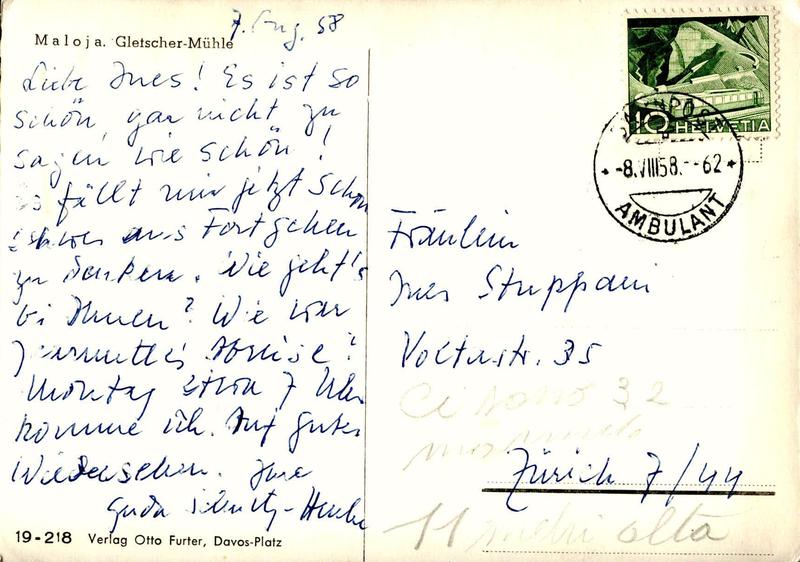 7. Aug. 58
Maloja. Gletscher-Mühle
Liebe Ines! Es ist so
schön, gar nicht zu
sagen wie schön!
Es fällt mir jetzt schon
schwer ans Fortgehen
zu denken. Wie geht's
bei Ihnen? Wie war
Abreise?
Montag etwa 7 Uhr
komme ich. Auf gutes
Wiedersehen. Ihre
19-218 Verlag Otto Furter, Davos-Platz
HELVETIA
10
BAHNPOST
-8.VIII58.--62
AMBULANT
Fräulein
Ines Stuppani
Voltastr. 35
Zürich 7/44
32
11 alta